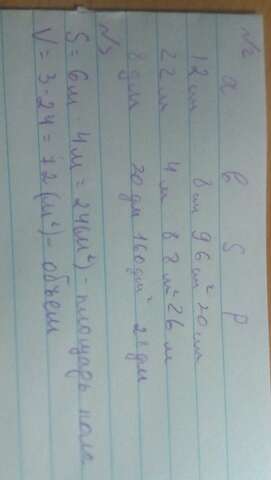 №2
a b S P
12 см 8 см 96 см² 20 см
22 м 4 м 88 м² 26 м
8 дм 20 дм 160 дм² 28 дм
№3
S = 6м · 4м = 24(м²) - площадь пола
V = 3 · 24 = 72(м²) - объем